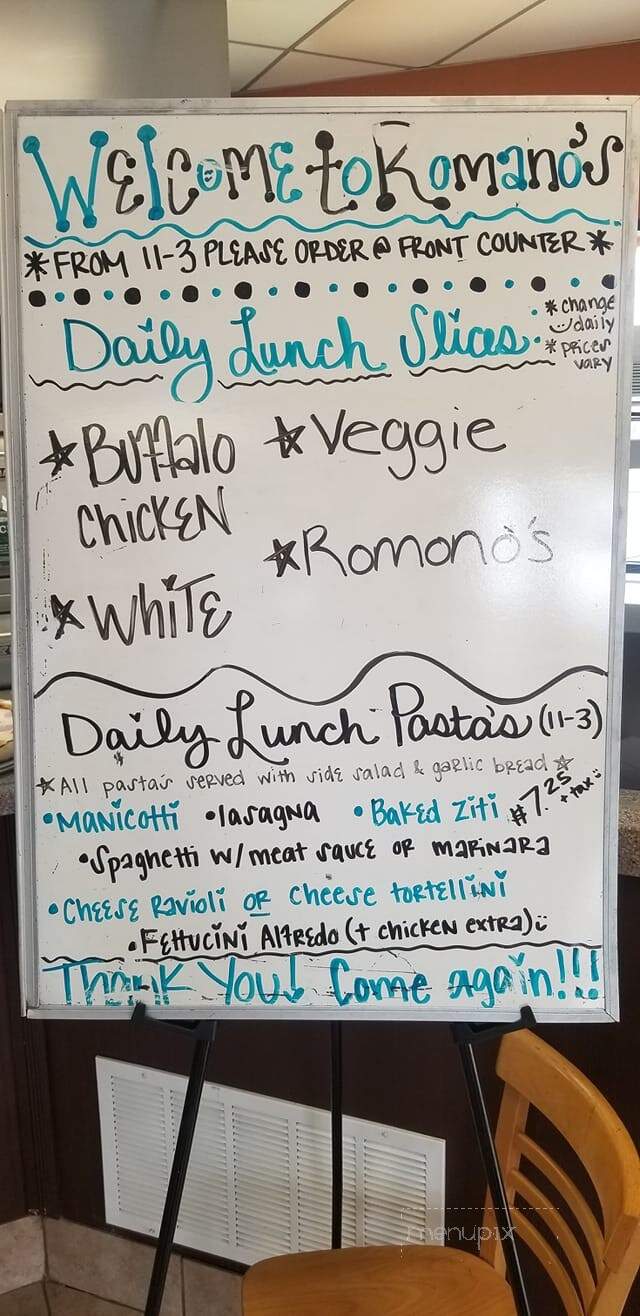 WElcomE to Romano's
*FROM 11-3 PLEASE ORDER @ FRONT COUNTER*
Daily Lunch Slices:
* change
daily
* prices
vary
Buffalo
chicKEN
Veggie
Romono's
WhiTE
Daily Lunch Pasta's (11-3)
All pasta's served with side salad & garlic bread
•MANicotti •lasagNa •BaKEd Ziti $7.25 + tax
•Spaghetti w/meat sauce or marinara
•CHEESE Ravioli OR Cheese tortellini
•FEttuciNi AlfRedo (+ chicken extra)
Thank You! Come again!!!
menupix